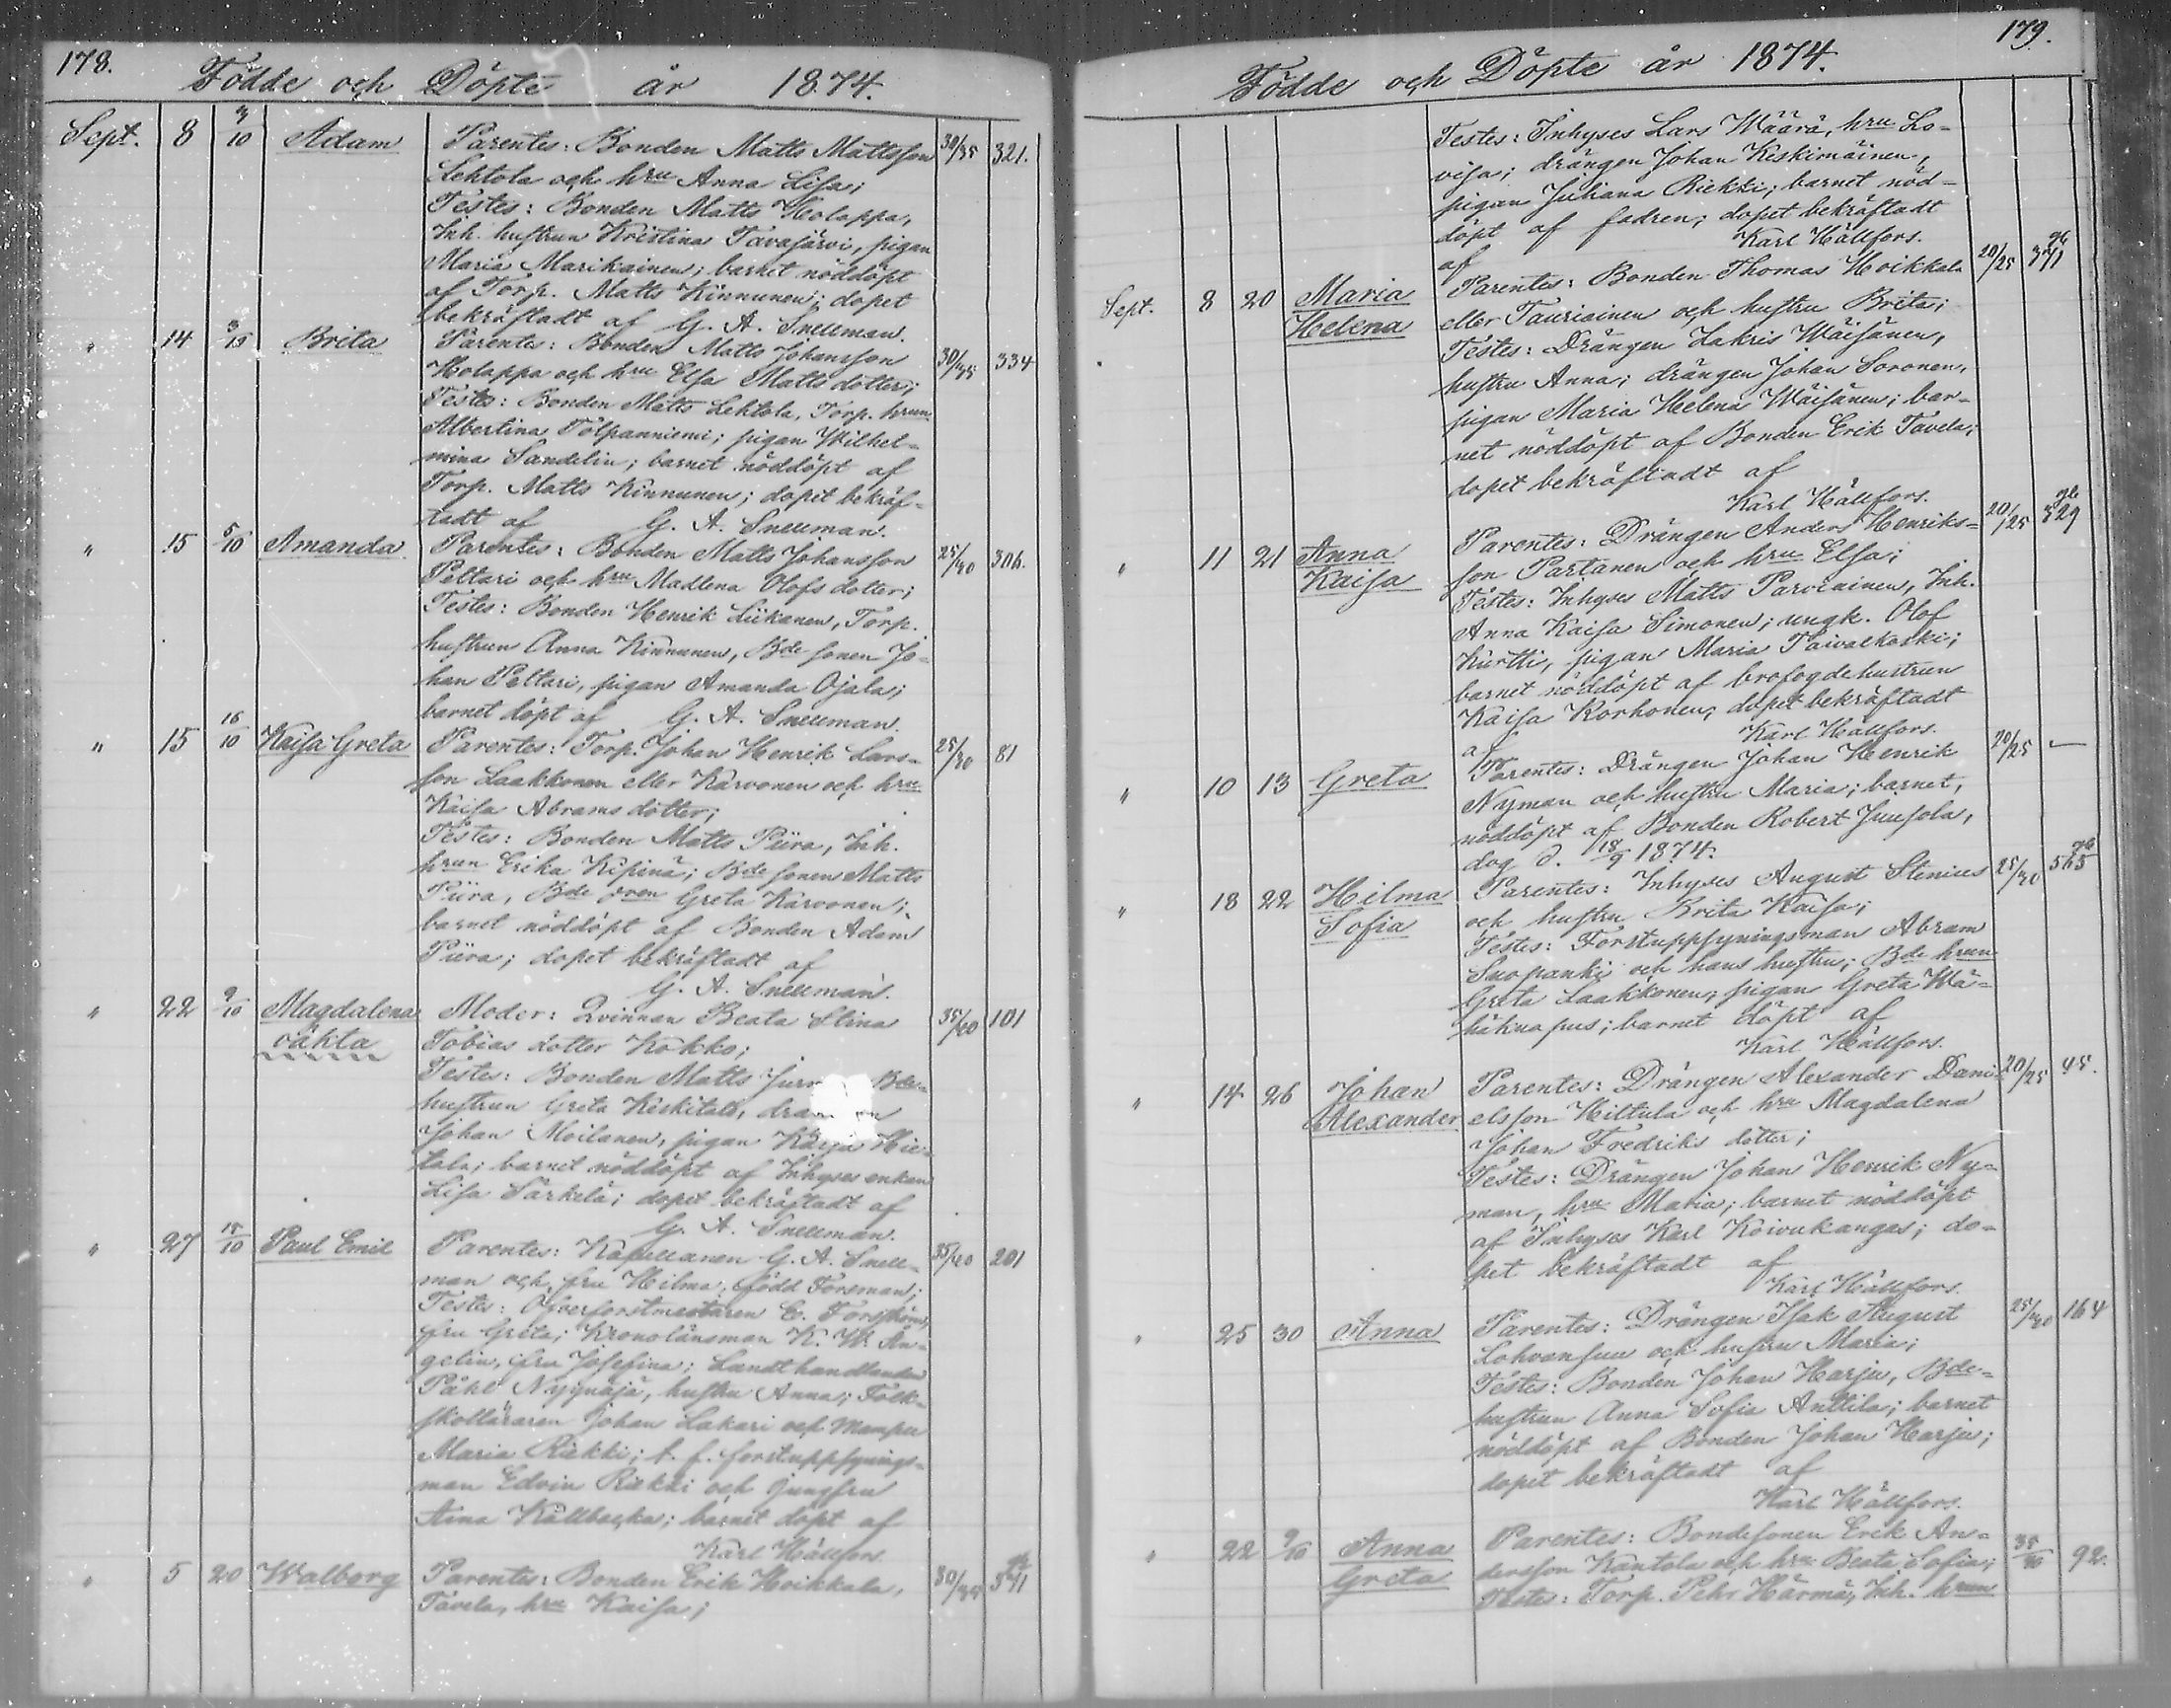 178.
Födde och Döpte år 1874.
Sept. 8 3/10 Adam Parentes: Bonden Matts Mattsson 30/35 321.
Lehtola och hru Anna Lisa;
Testes: Bonden Matts Holappa,
Inh. hustrun Kristina Tavajärvi, pigan
Maria Marikainen; barnet nöddöpt
af Torp. Matts Kinnunen; dopet
bekräftadt af G. A. Snellman.
" 14 Brita Parentes: Bonden Matts Johansson 334
Holappa och hru Elsa Matts dotter;
Testes: Bonden Matts Lehtola, Torp. hrun
Albertina Tolpanniemi; pigan Wilhel-
mina Sandelin; barnet nöddöpt af
Torp. Matts Kinnunen; dopet bekräf-
tadt af G. A. Snellman.
" 15 5/10 Amanda Parentes: Bonden Matts Johansson 306.
Peltari och hru Madlena Olofs dotter;
Testes: Bonden Henrik Liikanen, Torp.
hustrun Anna Kinnunen, Bde sonen Jo-
han Peltari, pigan Amanda Ojala;
barnet döpt af G. A. Snellman.
" 15 16/10 Kaisa Greta Parentes: Torp. Johan Henrik Lars- 25/30 81
son Laakkonen eller Karvonen och hru
Kaisa Abrams dotter;
Testes: Bonden Matts Piira, Inh.
hrun Erika Kipinä; Bde sonen Matts
Piira, Bde dren Greta Karvonen;
barnet nöddöpt af Bonden Adam
Piira; dopet bekräftadt af
G. A. Snellman.
" 22 9/10 Magdalena Moder: Qvinnan Beata Stina 35/40 101
oäkta Tobias dotter Kokko;
Testes: Bonden Matts Bde-
hustrun Greta Keskitalo,
Johan Moilanen, pigan Kaisa Hie-
tala; barnet nöddöpt af Inhyses enkan
Lisa Särkelä; dopet bekräftadt af
G. A. Snellman.
" 27 18/10 Paul Emil Parentes: Kapellanen G. A. Snell- 35/40 201
man och fru Hilma, född Forsman;
Testes: Öfverforstmästaren E. Forsström,
fru Greta; Kronolänsman K. W. An-
gelin, fru Josefina; Landthandlanden
Påhl Nyynäjä, hustru Anna; Folk-
skolläraren Johan Lakari och Mampu
Maria Riekki; t. f. forstuppsynings-
man Edvin Riekki och jungfru
Aina Kállbacka; barnet döpt af
Karl Hällfors.
" 5 20 Walborg Parentes: Bonden Erik Hoikkala,
Tavela, hru Kaisa;
179.
Födde och Döpte år 1874.
Testes: Inhyses Lars Wäärä, hru Lo-
visa; drängen Johan Keskimäinen,
pigan Juliana Riekki; barnet nöd-
döpt af fadren; dopet bekräftadt
af Karl Hällfors.
Sept. 8 20 Maria Parentes: Bonden Thomas Hoikkala 20/25
Helena eller Tauriainen och hustru Brita;
Testes: Drängen Zakris Wäisänen,
hustru Anna; drängen Johan Soronen,
pigan Maria Helena Wäisänen; bar-
net nöddöpt af Bonden Erik Tavela;
dopet bekräftadt af
Karl Hällfors.
" 11 21 Anna Parentes: Drängen Anders Henriks- 20/25 529
Kaisa son Partanen och hru Elsa;
Testes: Inhyses Matts Parviainen, Inh.
Anna Kaisa Simonen; ungk. Olof
Kurtti, pigan Maria Taivalkoski;
barnet nöddöpt af brofogdehustrun
Kaisa Korhonen, dopet bekräftadt
af Karl Hällfors.
" 10 13 Greta Parentes: Drängen Johan Henrik 20/25 —
Nyman och hustru Maria; barnet,
nöddöpt af Bonden Robert Juusola,
dog d. 18/9 1874.
" 18 22 Hilma Parentes: Inhyses August Stenius 25/30 565
Sofia och hustru Brita Kaisa;
Testes: Forstuppsyningsman Abram
Suopanki och hans hustru; Bde hrun
Greta Laakkonen, pigan Greta Wä-
häknapus; barnet döpt af
Karl Hällfors.
" 14 26 Johan Parentes: Drängen Alexander Dani- 20/25 45.
Alexander elsson Hiltula och hru Magdalena
Johan Fredriks dotter;
Testes: Drängen Johan Henrik Ny-
man, hru Maria; barnet nöddöpt
af Inhyses Karl Koivukangas; do-
pet bekräftadt af
Karl Hällfors.
" 25 30 Anna Parentes: Drängen Isak August 25/30 164
Lohvansuu och hustru Maria;
Testes: Bonden Johan Harju, Bde-
hustrun Anna Sofia Anttila; barnet
nöddöpt af Bonden Johan Harju;
dopet bekräftadt af
Karl Hällfors.
" 22 9/10 Anna Parentes: Bondesonen Erik An- 92.
Greta dersson Kantola och hru Beata Sofia;
Testes: Torp. Pehr Härmä, Inh. hrun